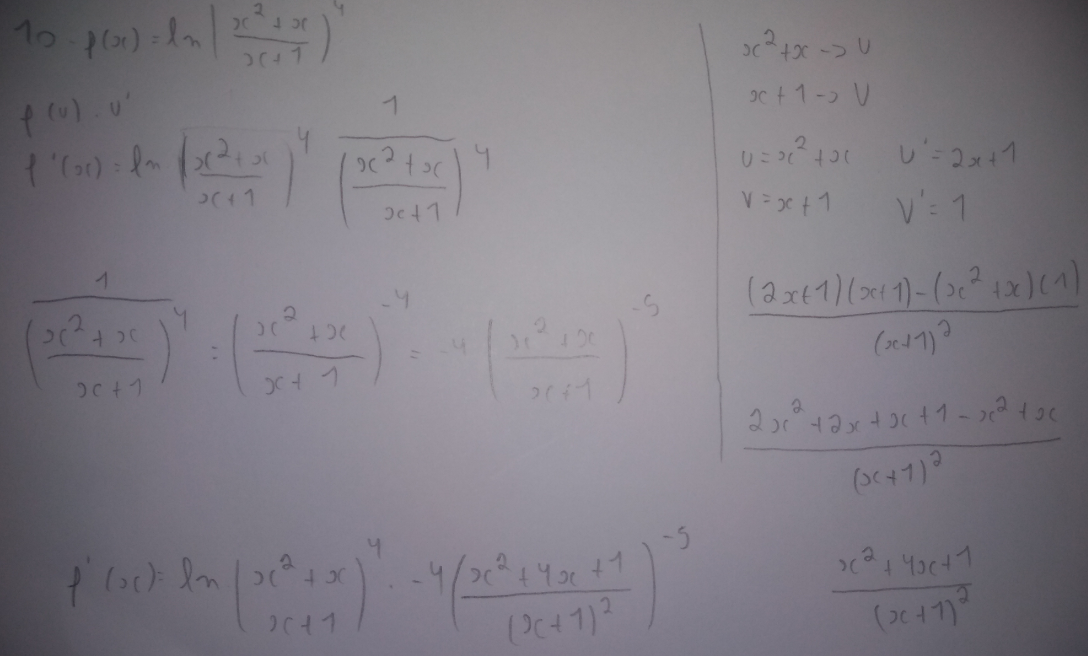 10. f(x) = ln((x²+x)/(x+1))⁴
f(u) . u'
f'(x) = ln((x²+x)/(x+1))⁴ 1/((x²+x)/(x+1))⁴
1/((x²+x)/(x+1))⁴ = ((x²+x)/(x+1))⁻⁴ = -4((x²+x)/(x+1))⁻⁵
f'(x) = ln(x²+x x+1)⁴ . -4((x²+4x+1)/(x+1)²)⁻⁵
x²+x -> U
x+1 -> V
U = x²+x U' = 2x+1
V = x+1 V' = 1
((2x+1)(x+1)-(x²+x)(1))/(x+1)²
(2x²+2x+x+1-x²+x)/(x+1)²
(x²+4x+1)/(x+1)²